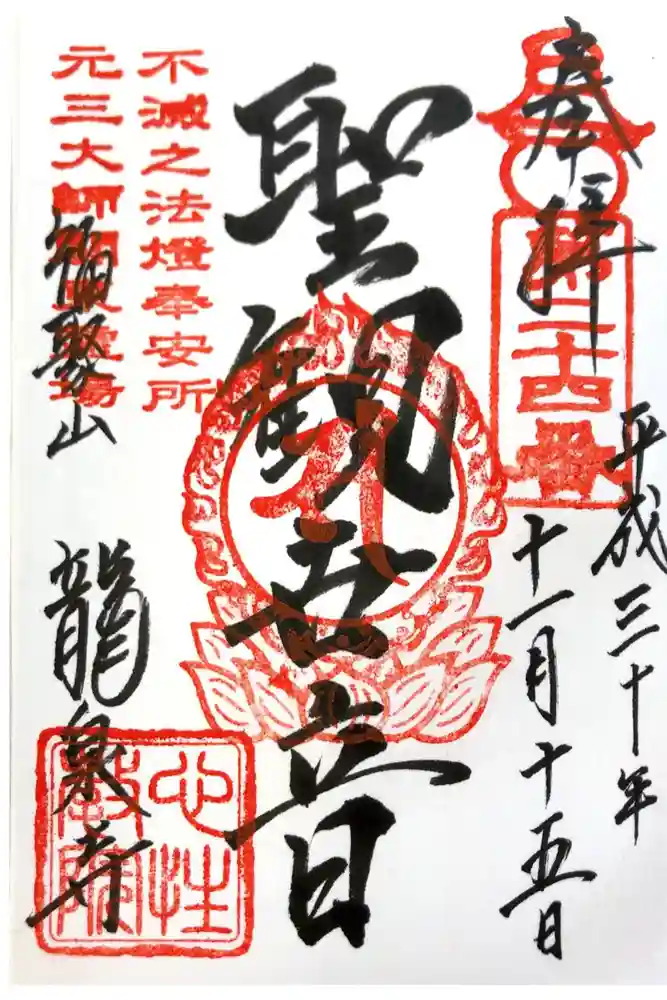 奉拝
第二十四番
平成三十年
十一月十五日
聖観世音
不滅之法燈奉安所
元三大師 霊場
彌聚山
龍泉寺
心性
教院